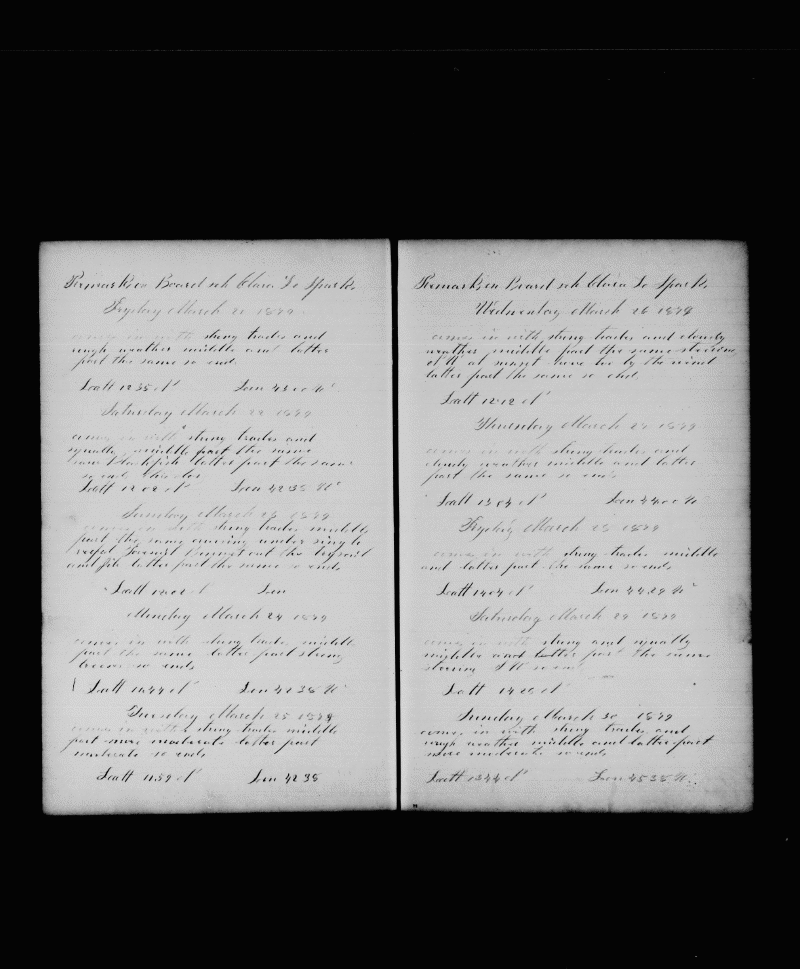 Remarks on Board sch Clara L Sparks
Fryday March 21 1879
comes in with strong trades and
rough weather middle and latter
part the same so ends
Latt 12 35 N Lon 43 00 W
Saturday March 22 1879
comes in with strong trades and
squally middle part the same
saw blackfish latter part the same
so ends this day
Latt 12 02 N Lon 42 35 W
Sunday March 23 1879
comes in with strong trades middle
part the same running under single
reefed foresail
and jib latter part the same so ends
Latt N Lon
Munday March 24 1879
comes in with strong trades middle
part the same latter part strong
breeze so ends
Latt N Lon 42 35 W
Tuesday March 25 1879
comes in with strong trades middle
part more moderate latter part
moderate so ends
Latt 11 59 N Lon 42 35
Remarks on Board sch Clara L Sparks
Wednesday March 26 1879
comes in with strong trades and cloudy
weather middle part the same steering
by the wind
latter part the same so ends
Latt 12 12 N
Thursday March 27 1879
comes in with strong trades and
cloudy weather middle and latter
part the same so ends
Latt 13 04 N Lon 44 00 W
Fryday March 28 1879
comes in with strong trades middle
and latter part the same so ends
Latt 14 04 N Lon 44 29 W
Saturday March 29 1879
comes in with strong and squally
weather and latter part the same
steering so ends
Latt N
Sunday March 30 1879
comes in with strong trades and
rough weather middle and latter part
more moderate so ends
Latt 13 44 N Lon 45 35 W